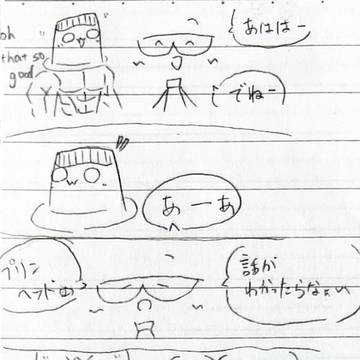 oh
that so
good
あははー
でねー
あーあ
プリン
ヘッドめ
話が
わかったらなぁい